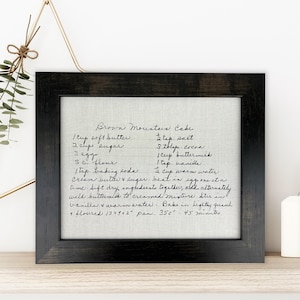 Brown Mountain Cake
1 cup soft butter
½ tsp salt
2 cups sugar
3 tbsp cocoa
3 eggs
1 cup buttermilk
3 c. flour
1 tsp vanilla
1 tsp baking soda
½ cup warm water
Cream butter & sugar. Beat in eggs one at a
time. Sift dry ingredients together, add alternately
with buttermilk to creamed mixture. Stir in
vanilla & warm water. Bake in lightly greased
& floured 13×9×2" pan. 350° 45 minutes